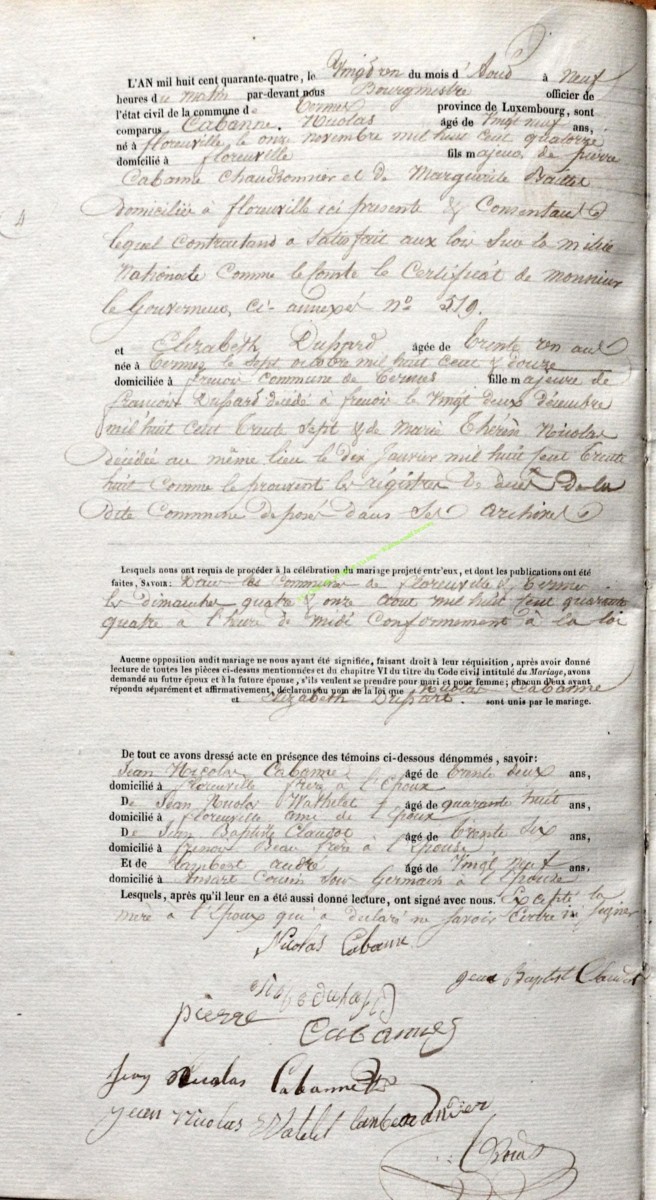 L'AN mil huit cent quarante-quatre, le Vingt un du mois d'Aout à Neuf
heures du matin par-devant nous Bourgmestre officier de
l'état civil de la commune de Termes province de Luxembourg, sont
comparus Cabanne Nicolas âgé de Vingt neuf ans,
né à florenville le onze novembre mil huit cent quatorze
domicilié à florenville fils majeur de pierre
Cabanne Chaudronnier et de Marguerite
Domiciliée à florenville ici presente & Consentant
lequel Contractand a Satisfait aux lois Sur la milice
Nationale Comme le Conste le Certificat de monsieur
le Gouverneur, ci annexée N° 519.
et Elizabéth Dupard âgée de trente un ans
née à Termes le sept octobre mil huit cent & douze
domiciliée à frenoir commune de Termes fille majeure de
francois Dupard decédé a frenoir le Vingt deux décembre
mil huit Cent trente Sept & de Marie Thérèse Nicolas
décédée au même lieu le dix Janvier mil huit Cent trente
huit Comme le prouvent les régistres de décès de la
dite Commune déposé dans Ses Archives
Lesquels nous ont requis de procéder à la célébration du mariage projeté entr'eux, et dont les publications ont été
faites, SAVOIR: Dans les Commune de florenville & Termes
les dimanches quatre & onze aout mil huit Cent quarante
quatre a l'heure de midi Conformement à la loi
Aucune opposition audit mariage ne nous ayant été signifiée, faisant droit à leur réquisition, après avoir donné
lecture de toutes les pièces ci-dessus mentionnées et du chapitre VI du titre du Code civil intitulé du Mariage, avons
demandé au futur époux et à la future épouse, s'ils veulent se prendre pour mari et pour femme; chacun d'eux ayant
répondu séparément et affirmativement, déclarons au nom de la loi que Nicolas Cabanne
et Elizabeth Dupart. sont unis par le mariage.
De tout ce avons dressé acte en présence des témoins ci-dessous dénommés, savoir:
Jean Nicolas Cabanne âgé de trente deux ans,
domicilié à florenville frère à l'Epoux
De Jean Nicolas Wathelet âgé de quarante huit ans,
domicilié à florenville ami de l'Epoux
De Jean Baptiste Claudot âgé de trente Six ans,
domicilié à frenoir Beau frère à l'Epouse
Et de Lambert andré âgé de Vingt neuf ans,
domicilié à Cousin Sous Germain à l'Epouse
Lesquels, après qu'il leur en a été aussi donné lecture, ont signé avec nous. Excepté la
mère à l'Epoux qui a declaré ne Savoir Ecrire ni Signer
Nicolas Cabanne
Jean Baptist Claudot
pierre Cabannes
Jean Nicolas Cabanne
Jean Nicolas Watelet